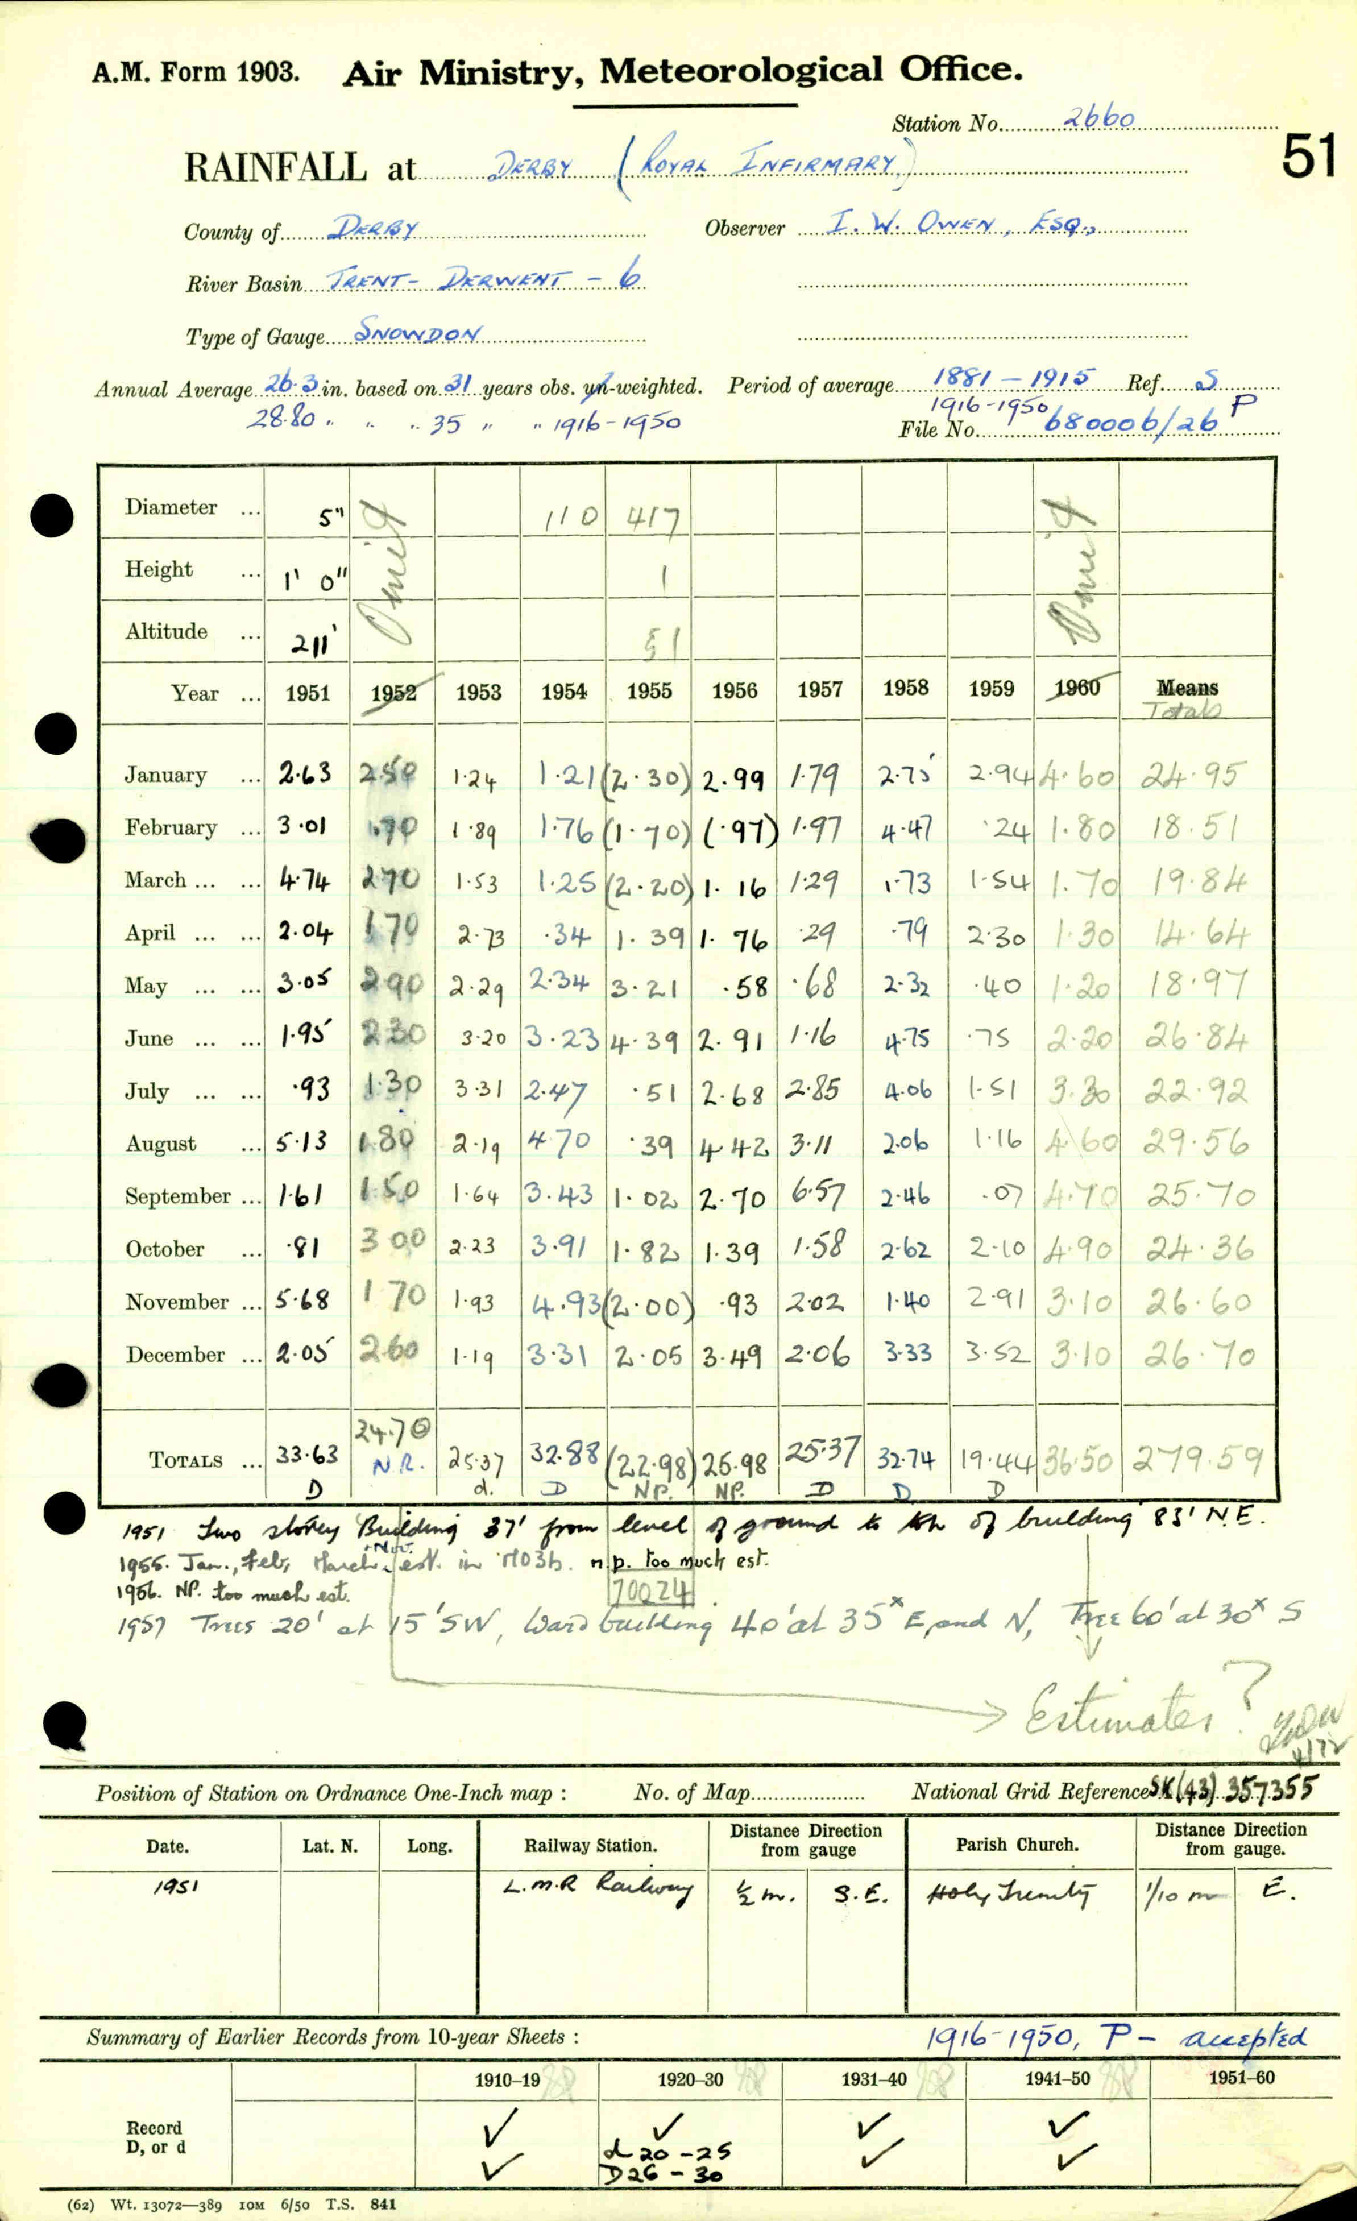 A.M. Form 1903. Air Ministry, Meteorological Office.
Station No. 2660
51
RAINFALL at DERBY (ROYAL INFIRMARY)
County of DERBY Observer I. W. OWEN, ESQ.,
River Basin TRENT- DERWENT - 6
Type of Gauge SNOWDON
Annual Average 26.3 in. based on 31 years obs. un-weighted. Period of average 1881-1915 Ref. S
28.80 " " " 35 " " 1916-1950 1916-1950 P
File No. 680006/26
Diameter ... 5" Omit 110 417 Omit
Height ... 1' 0" 1
Altitude ... 211' 51
Year ... 1951 1952 1953 1954 1955 1956 1957 1958 1959 1960 Means
Totals
January ... 2.63 2.50 1.24 1.21 (2.30) 2.99 1.79 2.75 2.94 4.60 24.95
February ... 3.01 1.70 1.89 1.76 (1.70) (.97) 1.97 4.47 .24 1.80 18.51
March ... ... 4.74 2.70 1.53 1.25 (2.20) 1.16 1.29 1.73 1.54 1.70 19.84
April ... ... 2.04 1.70 2.73 .34 1.39 1.76 .29 .79 2.30 1.30 14.64
May ... ... 3.05 2.90 2.29 2.34 3.21 .58 .68 2.32 .40 1.20 18.97
June ... ... 1.95 2.30 3.20 3.23 4.39 2.91 1.16 4.75 .75 2.20 26.84
July ... ... .93 1.30 3.31 2.47 .51 2.68 2.85 4.06 1.51 3.30 22.92
August ... 5.13 1.80 2.19 4.70 .39 4.42 3.11 2.06 1.16 4.60 29.56
September ... 1.61 1.50 1.64 3.43 1.02 2.70 6.57 2.46 .07 4.70 25.70
October ... .81 3.00 2.23 3.91 1.82 1.39 1.58 2.62 2.10 4.90 24.36
November ... 5.68 1.70 1.93 4.93 (2.00) .93 2.02 1.40 2.91 3.10 26.60
December ... 2.05 2.60 1.19 3.31 2.05 3.49 2.06 3.33 3.52 3.10 26.70
TOTALS ... 33.63 24.70 25.37 32.88 (22.98) 26.98 25.37 32.74 19.44 36.50 279.59
D N.R. d. D NP. NP. D D D
1951 Two storey Building 37' from level of ground to top of building 83' N.E.
1955. Jan., Feb, March + Nov. est. in M03b. n.p. too much est.
1956. NP. too much est. 70024
1957 Trees 20' at 15' SW, Ward building 40' at 35x E, and N, Tree 60' at 30x S
Estimates?
4/72
Position of Station on Ordnance One-Inch map : No. of Map National Grid Reference SK(43) 357355
Date. Lat. N. Long. Railway Station. Distance from gauge Direction Parish Church. Distance from gauge. Direction
1951 L.M.R Railway ½ m. S.E. Holy Trinity 1/10 m E.
Summary of Earlier Records from 10-year Sheets : 1916-1950, P - accepted
1910–19 1920–30 1931–40 1941–50 1951–60
Record ✓ ✓ ✓ ✓
D, or d ✓ d 20-25 ✓ ✓
D26-30
(62) Wt. 13072—389 10M 6/50 T.S. 841